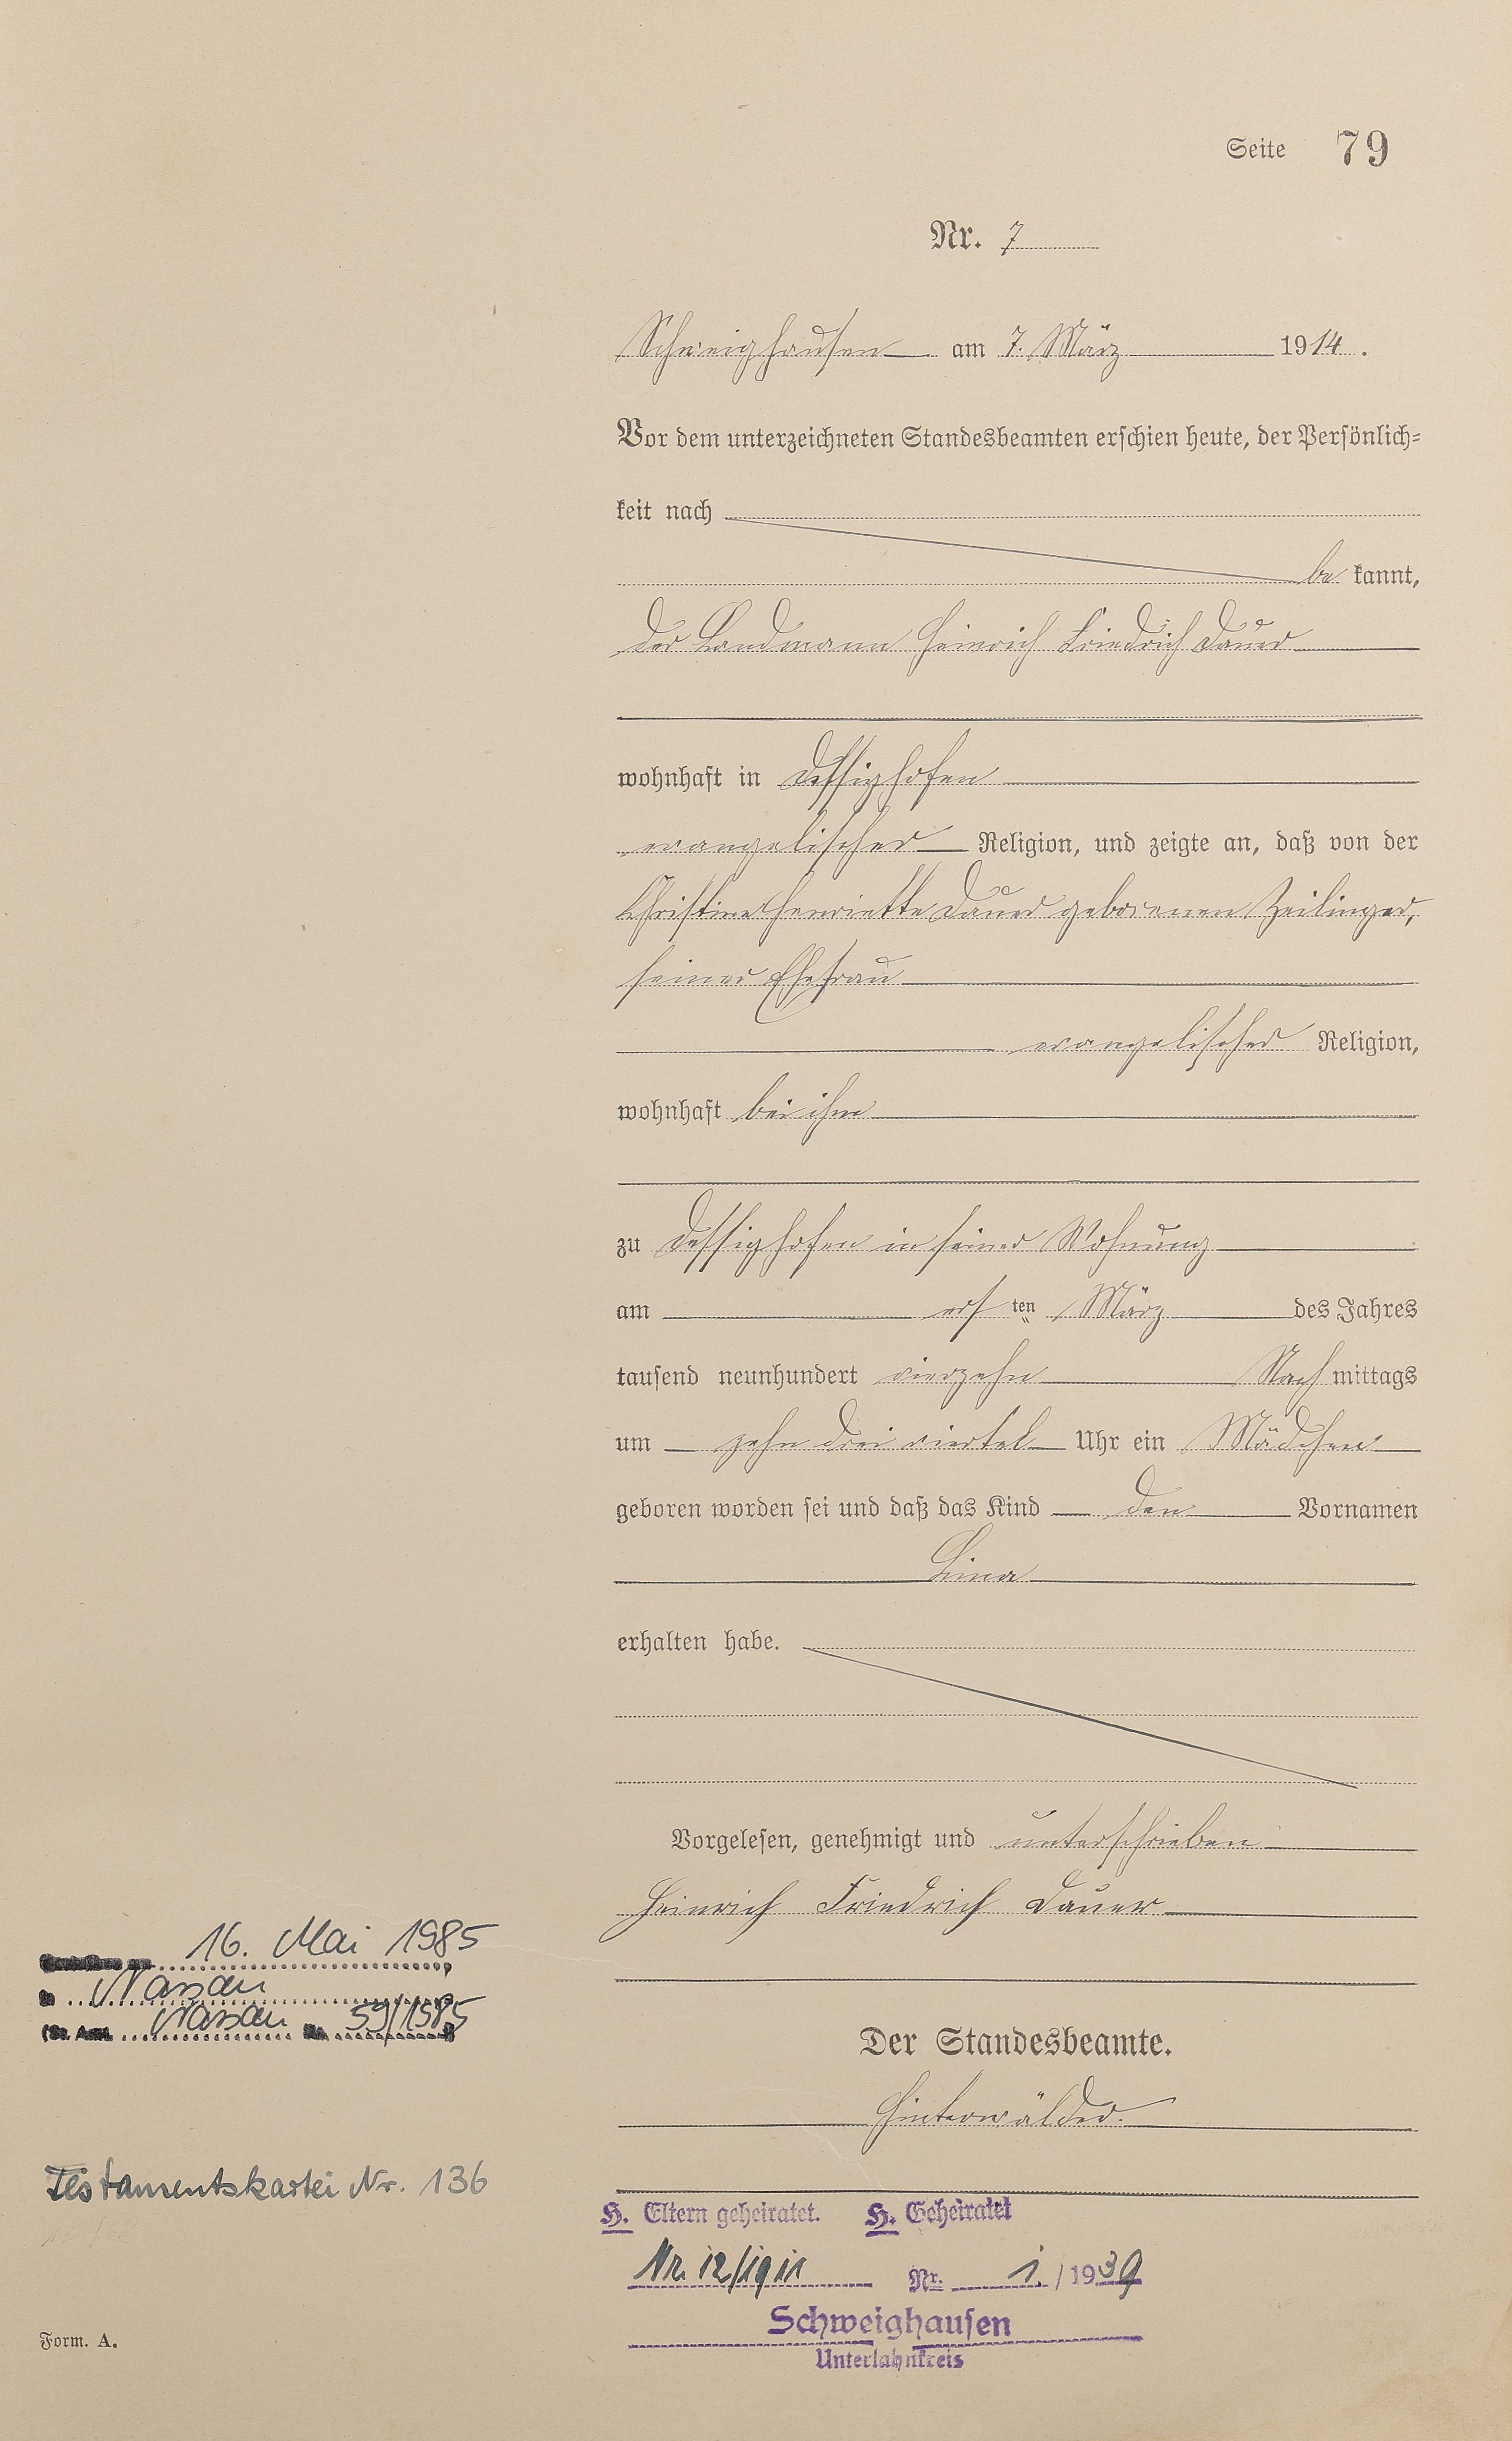 Seite 79
Nr. 7
Schweighausen am 7. März 1914.
Vor dem unterzeichneten Standesbeamten erschien heute, der Persönlich=
keit nach
be kannt,
der Landmann Heinrich Friedrich Dauer
wohnhaft in Dessighofen
evangelischer Religion, und zeigte an, daß von der
Christine Henriette Dauer geborenen Zeilinger,
seiner Ehefrau
evangelischer Religion,
wohnhaft bei ihm
zu Dessighofen in seiner Wohnung
am ersten März des Jahres
tausend neunhundert vierzehn Nachmittags
um zehn drei viertel Uhr ein Mädchen
geboren worden sei und daß das Kind den Vornamen
Lina
erhalten habe.
Vorgelesen, genehmigt und unterschrieben
Heinrich Friedrich Dauer
Der Standesbeamte.
Hinterwälder.
16. Mai 1985
in Nassau
(St. Amt Nassau Nr. 59/1985)
Testamentskartei Nr. 136
H. Eltern geheiratet. H. Geheiratet
Nr. 12/1911 Nr. 1. / 1939
Schweighausen
Unterlahnkreis
Form. A.